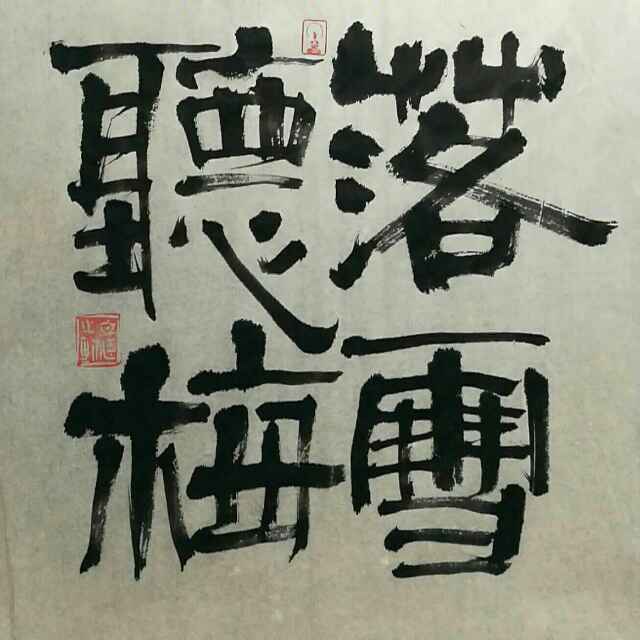 落雪
聽梅